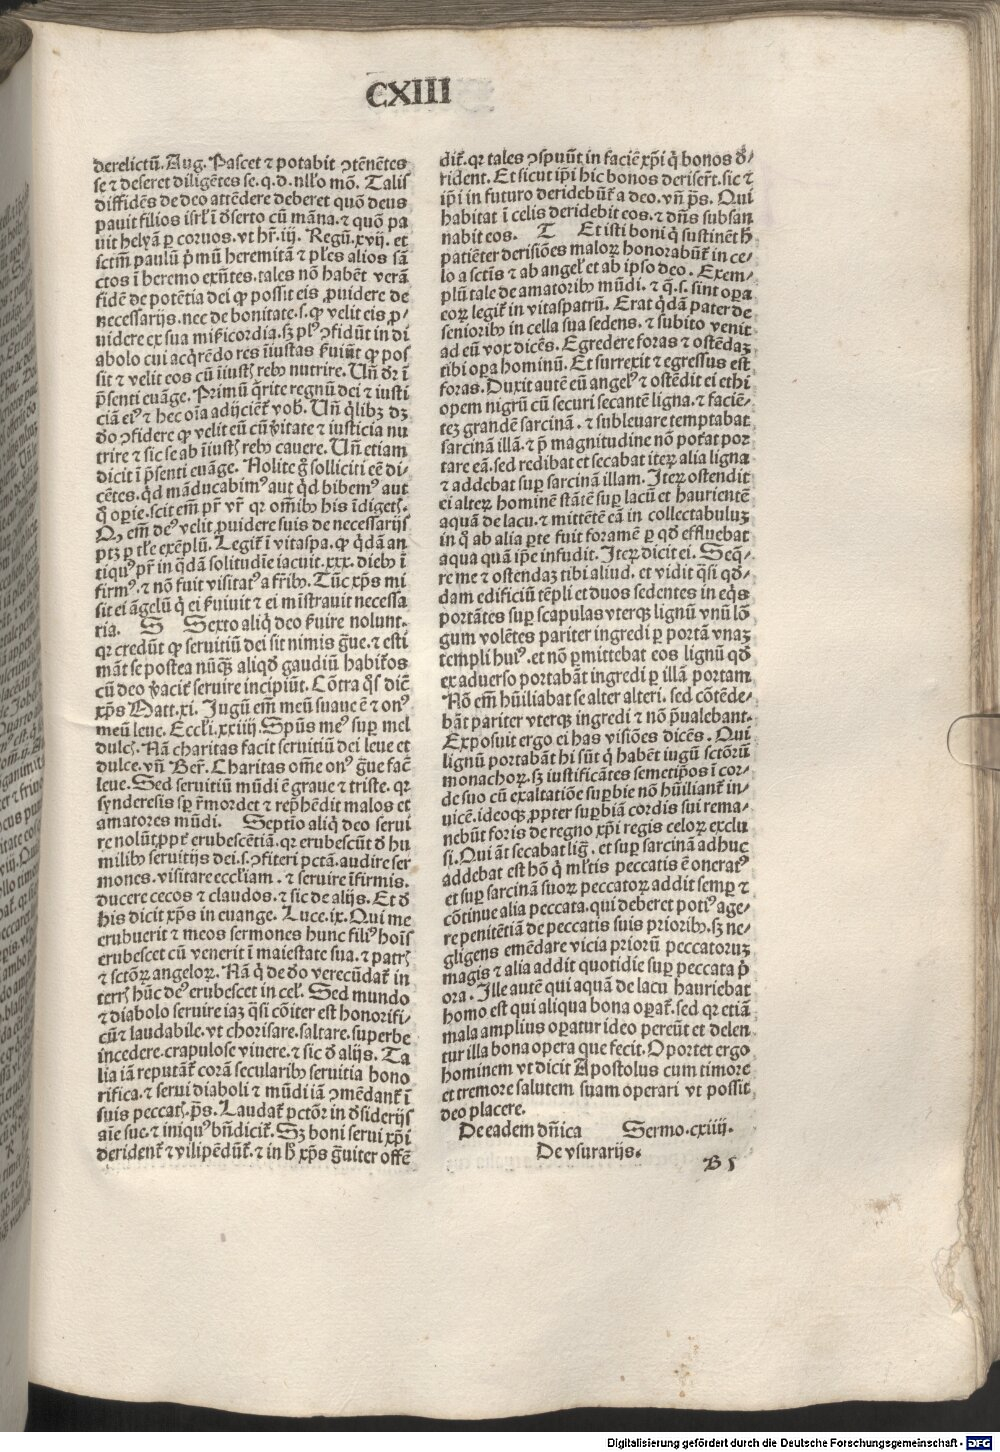 CXIII
derelictū. Aug. Pascet ⁊ potabit ꝯtēnētes
se ⁊ deseret diligētes se. q.d. nll'o mō. Talis
diffidēs de deo attēdere deberet quō deus
pauit filios isrl' ī dserto cū māna. ⁊ quō pa
uit helyā ꝑ coruos. vt hr̄. iij. Regū. xvij. et
sctm̄ paulū pͥmū heremitā ⁊ pl'es alios sā
ctos ī heremo exn̄tes. tales nō habēt verā
fidē de potētia dei ꝙ possit eis ꝓuidere de
necessarijs. nec de bonitate. s. ꝙ velit eis ꝓ-
uidere ex sua mīicordia. sꝫ plꝰ ꝯfidūt in di
abolo cui acqͥrēdo res īiustas ẜuiūt ꝙ pos
sit ⁊ velit eos cū īiustꝭ rebꝰ nutrire. Vn̄ dr̄ ī
p̄senti euāge. Primū qͥrite regnū dei ⁊ iusti
ciā eiꝰ ⁊ hec oīa adijciēt̉ vob̄. Vn̄ qͥlibꝫ dꝫ
deo ꝯfidere ꝙ velit eū cū v̓itate ⁊ iusticia nu
trire ⁊ sic se ab īiustꝭ rebꝰ cauere. Vn̄ etiam
dicit ī p̄senti euāge. Nolite gͦ solliciti eē di-
cētes. qͥd māducabimꝰ aut qͥd bibemꝰ aut
qͦ oꝑie. scit em̄ pr̄ vr̄ qr oīibꝰ his īdigetꝭ.
Qꝫ em̄ deꝰ velit ꝓuidere suis de necessarijs
ptꝫ ꝑ tl'e exēplū. Legit̉ ī vitaspa. ꝙ qͥdā an
tiquꝰ pr̄ in qͣdā solitudīe iacuit. xxx. diebꝰ ī
firmꝰ. ⁊ nō fuit visitatꝰ a fr̄ibꝰ. Tūc xp̄s mi
sit ei āgelū qͥ ei ẜuiuit ⁊ ei mīstrauit necessa
ria. S Sexto aliqͥ deo ẜuire nolunt.
qr credūt ꝙ seruitiū dei sit nimis gͣue. ⁊ esti
māt se postea nūqͣꝫ aliqd̓ gaudiū habit̉os
cū deo v̓acit̓ seruire incipiūt. Cōtra qͦs dic̄
xp̄s Matt. xi. Jugū em̄ meū suaue ē ⁊ onꝰ
meū leue. Eccl'i. xxiiij. Spūs meꝰ suꝑ mel
dulcꝭ. Nā charitas facit seruitiū dei leue et
dulce. vn̄ Ber̄. Charitas om̄e onꝰ gͣue fac̄
leue. Sed seruitiū mūdi ē graue ⁊ triste. qr
synderesis sꝑ r̄mordet ⁊ rep̄hēdit malos et
amatores mūdi. Septīo aliqͥ deo serui
re nolūt ꝓpt̓ erubescētiā. qr erubescūt ð hu
milibꝰ seruitijs dei. s. ꝯfiteri pctā. audire ser
mones. visitare eccl'iam. ⁊ seruire īfirmis.
ducere cecos ⁊ claudos. ⁊ sic de alijs. Et ð
his dicit xp̄s in euange. Luce. ix. Qui me
erubuerit ⁊ meos sermones hunc filiꝰ hoīs
erubescet cū venerit ī maiestate sua. ⁊ patrꝭ
⁊ sctōꝝ angeloꝝ. Nā qͥ de deo verecūdat̉ in
terrꝭ hūc deꝰ erubescet in cel'. Sed mundo
⁊ diabolo seruire iaꝫ qͣsi cōiter est honorifi-
cū ⁊ laudabile. vt chorisare. saltare. superbe
incedere. crapulose viuere. ⁊ sic ð alijs. Ta
lia iā reputāt̉ corā secularibꝰ seruitia hono
rifica. ⁊ serui diaboli ⁊ mūdi iā ꝯmēdant̉ ī
suis peccatꝭ. p̄s. Laudat̉ pctōr in ðsiderijs
aīe sue. ⁊ iniquꝰ bn̄dicit̉. Sꝫ boni serui xp̄i
derident̉ ⁊ vilipēdūt̉. ⁊ in hͦ xp̄s gͣuiter offē
dit̉. qr tales ꝯspuūt in faciē xp̄i qͥ bonos ð-
rident. Et sicut ip̄i hic bonos deriser̄t. sic ⁊
ip̄i in futuro deridebūt̉ a deo. vn̄ p̄s. Qui
habitat ī celis deridebit eos. ⁊ dn̄s subsan
nabit eos. T Et isti boni qͥ sustinēt hͦ
patiēter derisiōes maloꝝ honorabūt̉ in ce-
lo a sctīs ⁊ ab angel' et ab ipso deo. Exem-
plū tale de amatoribꝰ mūdi. ⁊ q̄. s. sint oꝑa
eoꝝ legit̉ in vitaspatrū. Erat qͥdā pater de
senioribꝰ in cella sua sedens. ⁊ subito venit
ad eū vox dicēs. Egredere foras ⁊ ostēdaꝫ
tibi oꝑa hominū. Et surrexit ⁊ egressus est
foras. Duxit autē eū angelꝰ ⁊ ostēdit ei ethi
opem nigrū cū securi secantē ligna. ⁊ faciē-
teꝫ grandē sarcinā. ⁊ subleuare temptabat
sarcinā illā. ⁊ p̄ magnitudine nō pot̉at por
tare eā. sed redibat et secabat iteꝝ alia ligna
⁊ addebat suꝑ sarcinā illam. Jteꝝ ostendit
ei alteꝝ hominē stātē suꝑ lacū et haurientē
aquā de lacu. ⁊ mittētē eā in collectabuluꝫ
in qͦ ab alia ꝑte fuit foramē ꝑ qd̓ effluebat
aqua quā ip̄e infudit. Jteꝝ dicit ei. Seqͣ-
re me ⁊ ostendaꝫ tibi aliud. et vidit qͣsi qd̓-
dam edificiū tēpli et duos sedentes in eqͥs
portātes suꝑ scapulas vterqꝫ lignū vnū lō
gum volētes pariter ingredi ꝑ portā vnaꝫ
templi huiꝰ. et nō ꝑmittebat eos lignū qd̓
ex aduerso portabāt ingredi ꝑ illā portam
Nō em̄ hūiliabat se alter alteri. sed cōtēde-
bāt pariter vterqꝫ ingredi ⁊ nō p̄ualebant.
Exposuit ergo ei has visiōes dicēs. Qui
lignū portabāt hi sūt qͥ habēt iugū sctōrū
monachoꝝ. sꝫ iustificātes semetip̄os ī cor-
de suo cū exaltatiōe suꝑbie nō hūiliant̉ in-
uicē. ideoqꝫ ꝓpter suꝑbiā cordis sui rema-
nebūt foris de regno xp̄i regis celoꝝ exclu
si. Qui āt secabat liḡ. et suꝑ sarcinā adhuc
addebat est hō qͥ ml'tis peccatis ē oneratꝰ
et suꝑ sarcinā suoꝝ peccatoꝝ addit semꝑ ⁊
cōtinue alia peccata. qui deberet potiꝰ age-
re penitētiā de peccatis suis prioribꝰ. sꝫ ne-
gligens emēdare vicia priorū peccatoruꝫ
magis ⁊ alia addit quotidie suꝑ peccata pͥ
ora. Jlle autē qui aquā de lacu hauriebat
homo est qui aliqua bona oꝑat̉. sed qr etiā
mala amplius oꝑatur ideo pereūt et delen
tur illa bona opera que fecit. Oportet ergo
hominem vt dicit Apostolus cum timore
et tremore salutem suam operari vt possit
deo placere.
De eadem dn̄ica Sermo. cxiiij.
De vsurarijs.
B 5
Digitalisierung gefördert durch die Deutsche Forschungsgemeinschaft - DFG